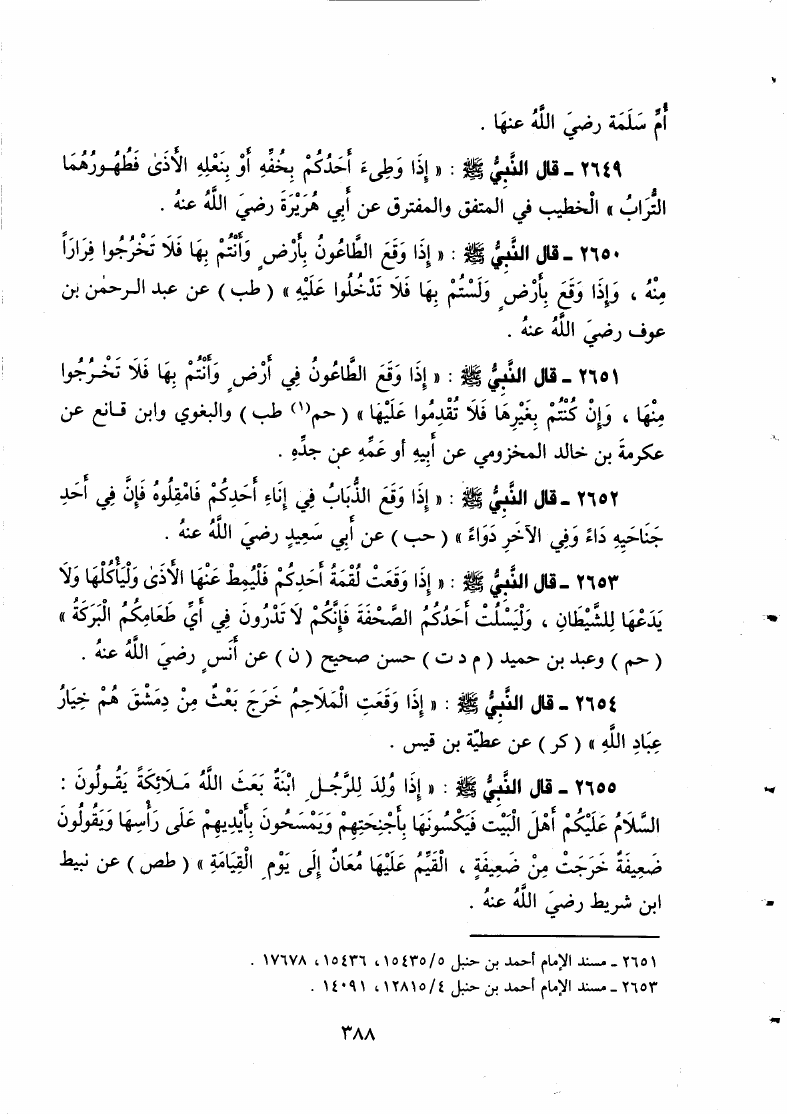 أُمِّ سَلَمَةَ رضيَ اللَّهُ عنهَا .
٢٦٤٩ ـ قال النَّبِيُّ ﷺ : « إِذَا وَطِىءَ أَحَدُكُمْ بِخُفِّهِ أَوْ بِنَعْلِهِ الأَذَىٰ فَطُهُورُهُمَا
التُّرَابُ » الْخطيب في المتفق والمفترق عن أبي هُرَيْرَةَ رضيَ اللَّهُ عنهُ .
٢٦٥٠ ـ قال النَّبِيُّ ﷺ : « إِذَا وَقَعَ الطَّاعُونُ بِأَرْضٍ وَأَنْتُمْ بِهَا فَلَا تَخْرُجُوا فِرَارَاً
مِنْهُ ، وَإِذَا وَقَعَ بِأَرْضٍ وَلَسْتُمْ بِهَا فَلَا تَدْخُلُوا عَلَيْهِ » ( طب ) عن عبد الرحمٰن بن
عوف رضيَ اللَّهُ عنهُ .
٢٦٥١ ـ قال النَّبِيُّ ﷺ : « إِذَا وَقَعَ الطَّاعُونُ فِي أَرْضٍ وَأَنْتُمْ بِهَا فَلَا تَخْرُجُوا
مِنْهَا ، وَإِنْ كُنْتُمْ بِغَيْرِهَا فَلَا تَقْدِمُوا عَلَيْهَا » ( حم(١) طب ) والبغوي وابن قانع عن
عكرمةَ بن خالد المخزومي عن أبيهِ أو عَمِّهِ عن جدِّهِ .
٢٦٥٢ ـ قال النَّبِيُّ ﷺ : « إِذَا وَقَعَ الذُّبَابُ فِي إِنَاءِ أَحَدِكُمْ فَامْقِلُوهُ فَإِنَّ فِي أَحَدِ
جَنَاحَيهِ دَاءً وَفِي الآخَرِ دَوَاءً » ( حب ) عن أبي سَعِيدٍ رضيَ اللَّهُ عنهُ .
٢٦٥٣ ـ قال النَّبِيُّ ﷺ : « إِذَا وَقَعَتْ لُقْمَةُ أَحَدِكُمْ فَلْيُمِطْ عَنْهَا الأَذَىٰ وَلْيَأْكُلْهَا وَلَا
يَدَعْهَا لِلشَّيْطَانِ ، وَلْيَسْلُتْ أَحَدُكُمُ الصَّحْفَةَ فَإِنَّكُمْ لَا تَدْرُونَ فِي أَيِّ طَعَامِكُمُ الْبَرَكَةُ »
( حم ) وعبد بن حميد ( م د ت ) حسن صحيح ( ن ) عن أَنَسٍ رضيَ اللَّهُ عنهُ .
٢٦٥٤ ـ قال النَّبِيُّ ﷺ : « إِذَا وَقَعَتِ الْمَلَاحِمُ خَرَجَ بَعْثٌ مِنْ دِمَشْقَ هُمْ خِيَارُ
عِبَادِ اللَّهِ » ( كر ) عن عطيَّة بن قيس .
٢٦٥٥ ـ قال النَّبِيُّ ﷺ : « إِذَا وُلِدَ لِلرَّجُلِ ابْنَةٌ بَعَثَ اللَّهُ مَلَائِكَةً يَقُولُونَ :
السَّلَامُ عَلَيْكُمْ أَهْلَ الْبَيْتِ فَيَكْسُونَهَا بِأَجْنِحَتِهِمْ وَيَمْسَحُونَ بِأَيْدِيهِمْ عَلَى رَأْسِهَا وَيَقُولُونَ
ضَعِيفَةٌ خَرَجَتْ مِنْ ضَعِيفَةٍ ، الْقَيِّمُ عَلَيْهَا مُعَانٌ إِلَى يَوْمِ الْقِيَامَةِ » ( طص ) عن نبيط
ابن شريط رضيَ اللَّهُ عنهُ .
٢٦٥١ ـ مسند الإمام أحمد بن حنبل ١٥٤٣٥/٥ ، ١٥٤٣٦ ، ١٧٦٧٨ .
٢٦٥٣ ـ مسند الإمام أحمد بن حنبل ١٢٨١٥/٤ ، ١٤٠٩١ .
٣٨٨